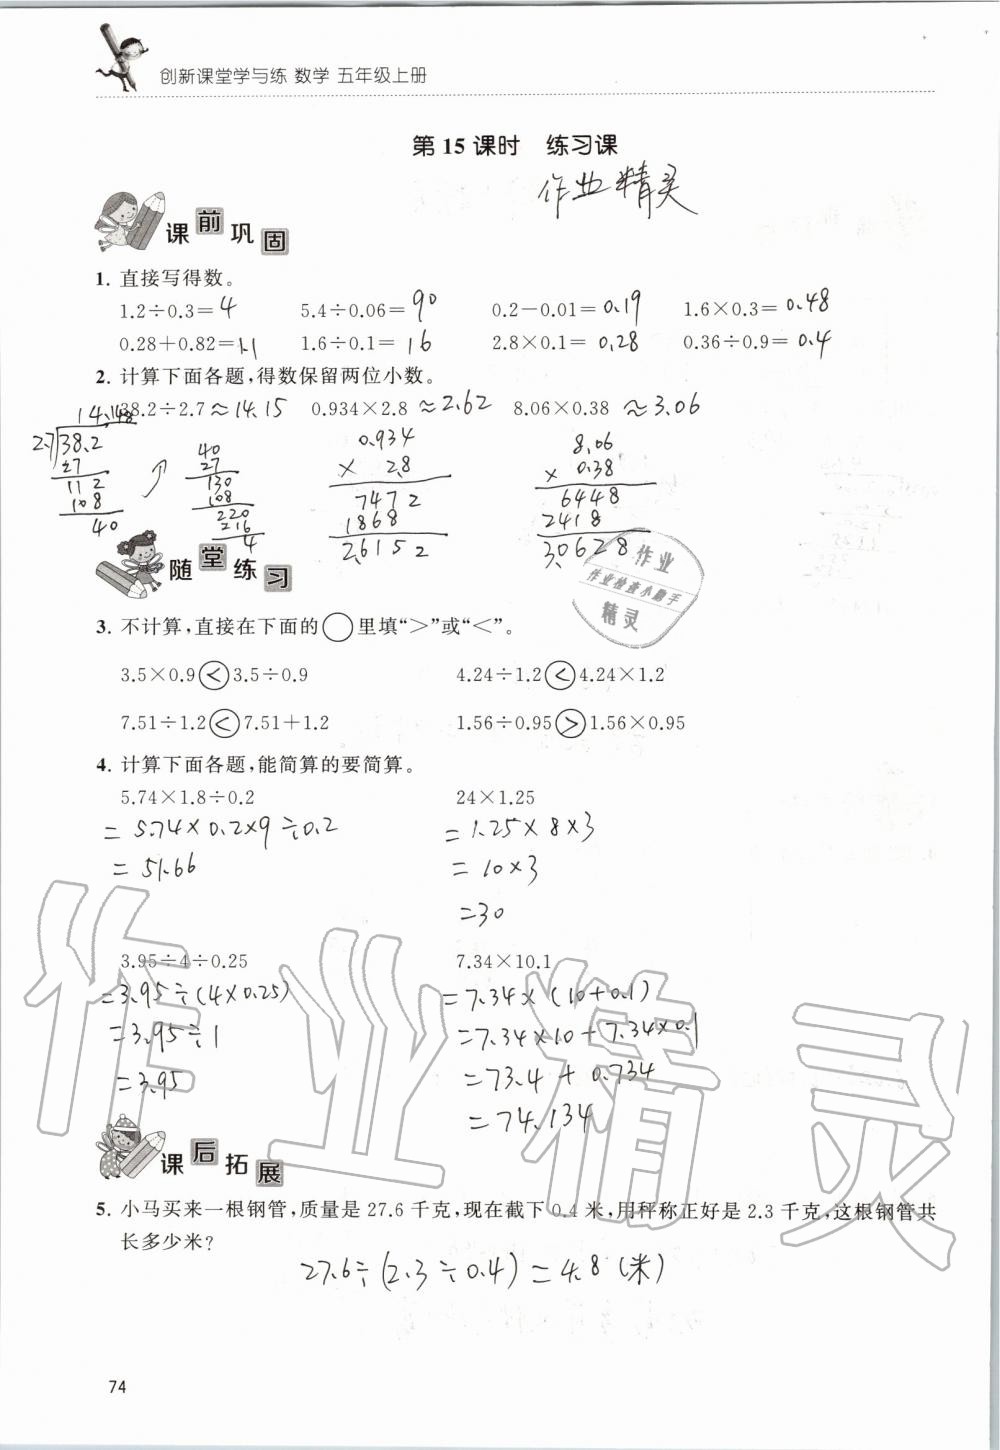 创新课堂学与练 数学 五年级上册
第 15 课时 练习课
作业精灵
课前巩固
1. 直接写得数。
1.2÷0.3=4 5.4÷0.06=90 0.2-0.01=0.19 1.6×0.3=0.48
0.28+0.82=1.1 1.6÷0.1=16 2.8×0.1=0.28 0.36÷0.9=0.4
2. 计算下面各题,得数保留两位小数。
38.2÷2.7≈14.15 0.934×2.8≈2.62 8.06×0.38≈3.06
14.148
2.7 38.2 40 0.934 8.06
27 27 × 2.8 × 0.38
112 130 7472 6448
108 108 1868 2418
40 220 2.6152 3.0628
216
4
作业
作业检查小助手
精灵
随堂练习
3. 不计算,直接在下面的○里填“>”或“<”。
3.5×0.9<3.5÷0.9 4.24÷1.2<4.24×1.2
7.51÷1.2<7.51+1.2 1.56÷0.95>1.56×0.95
4. 计算下面各题,能简算的要简算。
5.74×1.8÷0.2 24×1.25
=5.74×0.2×9÷0.2 =1.25×8×3
=51.66 =10×3
=30
3.95÷4÷0.25 7.34×10.1
=3.95÷(4×0.25) =7.34×(10+0.1)
=3.95÷1 =7.34×10+7.34×0.1
=3.95 =73.4+0.734
=74.134
作业精灵
课后拓展
5. 小马买来一根钢管,质量是27.6千克,现在截下0.4米,用秤称正好是2.3千克,这根钢管共
长多少米?
27.6÷(2.3÷0.4)=4.8(米)
74